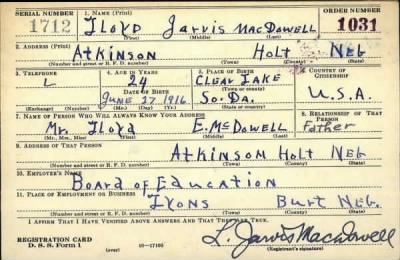 SERIAL NUMBER 1. NAME (Print) ORDER NUMBER
1712 Lloyd Jarvis MacDowell 1031
(First) (Middle) (Last)
2. ADDRESS (Print)
Atkinson Holt Neb
(Number and street or R. F. D. number) (Town) (County) (State)
3. TELEPHONE 4. AGE IN YEARS 5. PLACE OF BIRTH 6. COUNTRY OF CITIZENSHIP
L 24 Clear Lake
DATE OF BIRTH (Town or county)
June 27 1916 So. Da. U.S.A.
(Exchange) (Number) (Mo.) (Day) (Yr.) (State or country)
7. NAME OF PERSON WHO WILL ALWAYS KNOW YOUR ADDRESS 8. RELATIONSHIP OF THAT PERSON
Mr. Lloyd E. McDowell father
(Mr., Mrs., Miss) (First) (Middle) (Last)
9. ADDRESS OF THAT PERSON
Atkinson Holt Neb
(Number and street or R. F. D. number) (Town) (County) (State)
10. EMPLOYER'S NAME
Board of Education
11. PLACE OF EMPLOYMENT OR BUSINESS
Lyons Burt Neb.
(Number and street or R. F. D. number) (Town) (County) (State)
I AFFIRM THAT I HAVE VERIFIED ABOVE ANSWERS AND THAT THEY ARE TRUE.
REGISTRATION CARD
D. S. S. Form 1 (over) 16—17105 L. Jarvis MacDowell
(Registrant's signature)